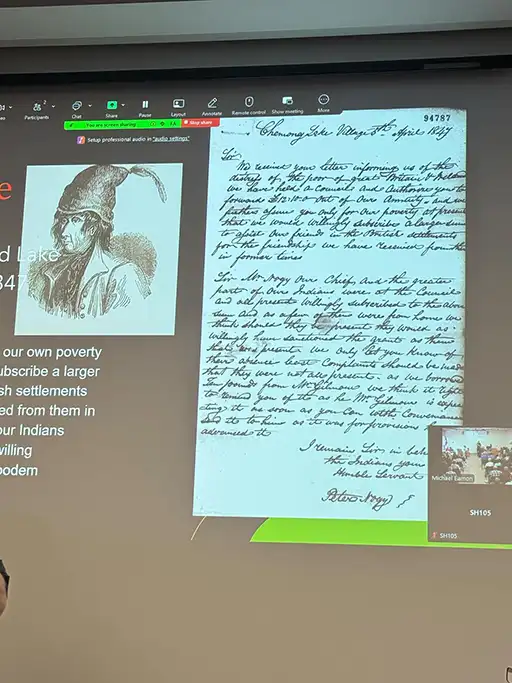 Participants
2
Chat
Share
Pause
Layout
Annotate
Remote control
Show meeting
More
You are screen sharing
Stop share
Setup professional audio in "audio settings"
e
d Lake
847
our own poverty
ubscribe a larger
sh settlements
ed from them in
our Indians
willing
oodem
94787
Chemong Lake Village 5th April 1847
Sir
We received your letter informing us of the
distress of the poor of great Britain &
we have held a Council and Authorize you to
forward £12.10.0 out of Our Annuity and we
further assure you only for Our poverty at present
that we would willingly subscribe a larger sum
to assist Our friends in the British settlements
for the friendship we have received from the
in former times
Sir Mr Nogy Our Chief, and the greater
part of Ours Indians were at the Council
and all present willingly subscribed to the above
sum and as a few of them were from home we
think should they be present they would as
willingly have sanctioned the grant as those
that was present. we only let you know of
their absence least Complaints should be made
that they were not all present. as we borrowed
Ten pounds from Mr Gilmour we think it right
to remind you of it as he Mr Gilmour is
it as soon as you can with Convenience
send it to him as it was for provisions
advanced it
I remain Sir in beh
the Indians your
Humble Servant
Peter Nogy
Michael Eamon
SH105
SH105